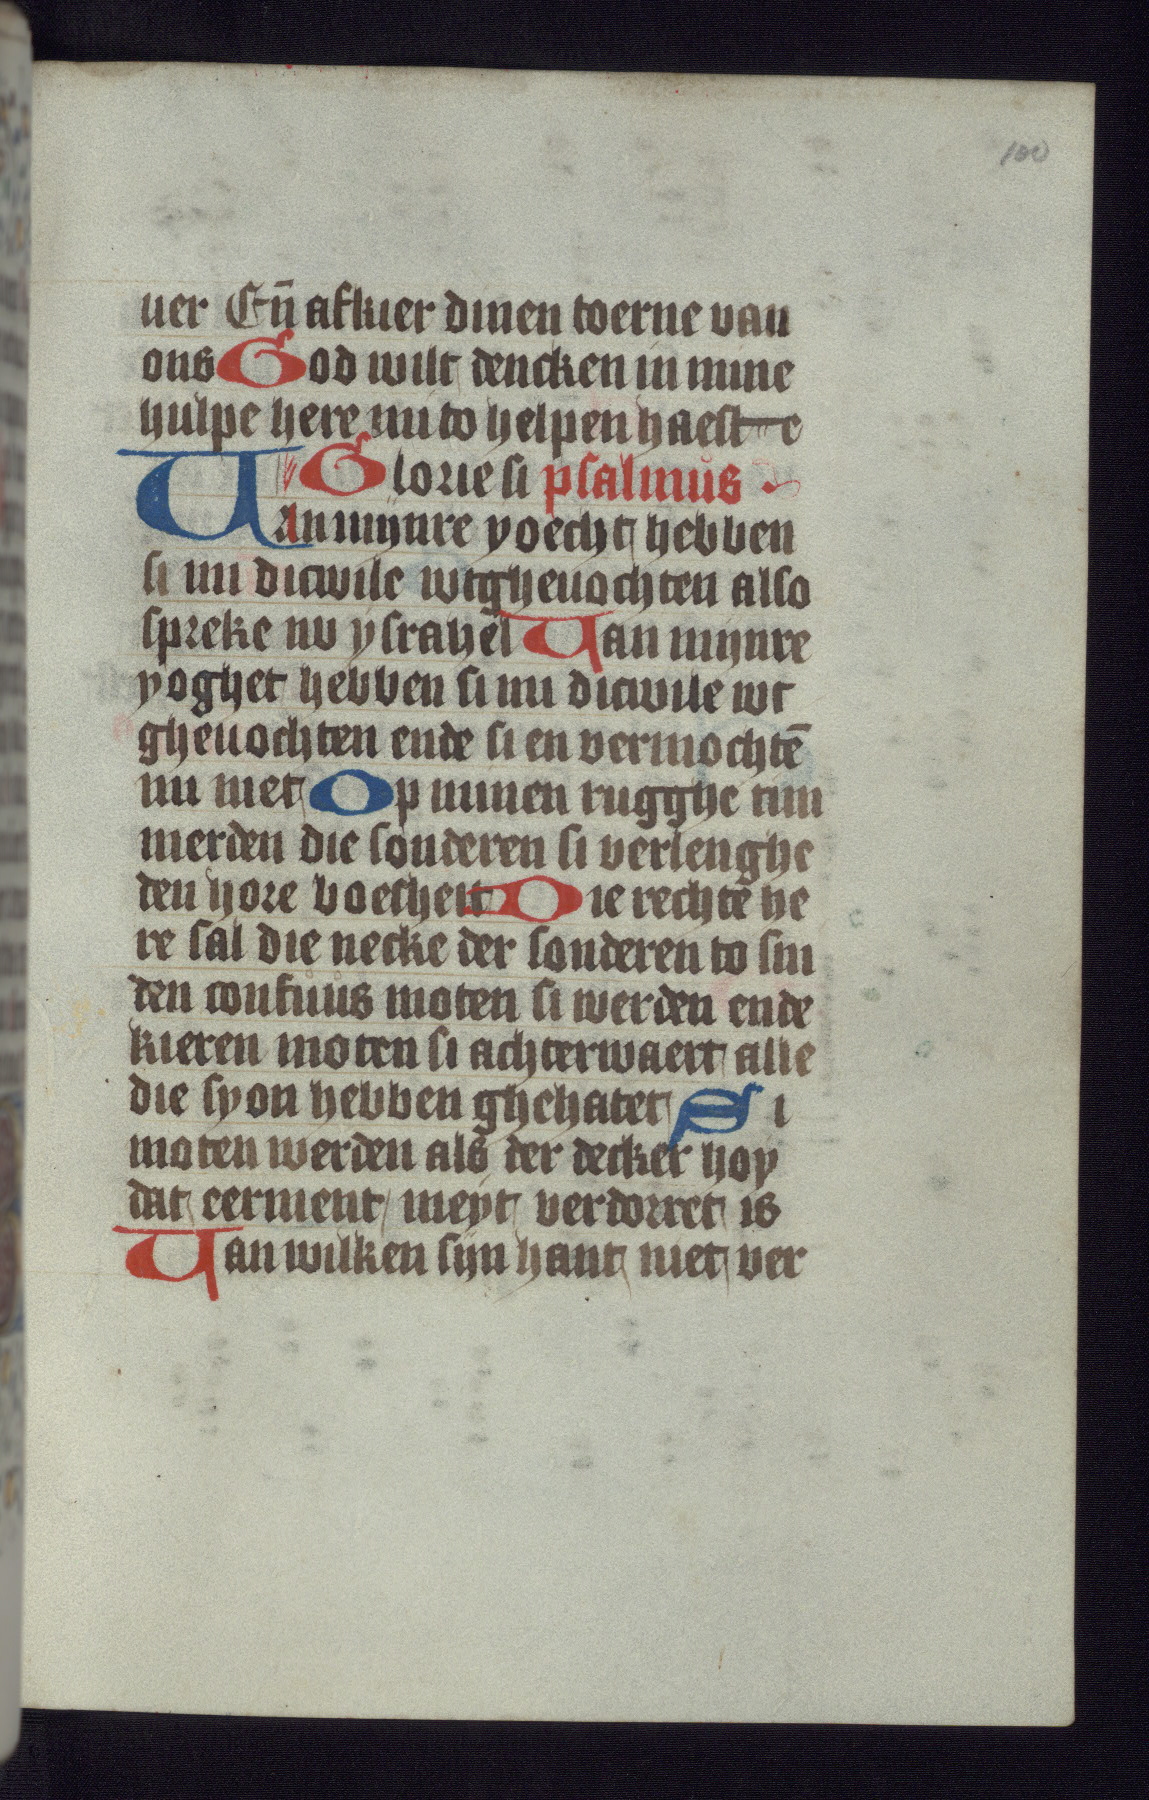 100
uer Eñ afkier dinen toerne van
ons God wilt dencken in mine
hulpe here mi to helpen haest e
Glorie si psalmus
Uan mijnre yoecht hebben
si mi dicwile wtgheuochten also
spreke nv ysrahel Uan mijnre
yoghet hebben si mi dicwile wt
gheuochten ende si en vermochtē
mi niet Op minen rugghe tim
merden die sonderen si verlenghe
den hore boesheit Die rechtē he
re sal die necke der sonderen to sni
den confuus moten si werden ende
kieren moten si achterwaert alle
die syon hebben ghehatet Si
moten werden als der decker hoy
dat eerment meyt verdorret is
Uan wilken sijn hant niet ver